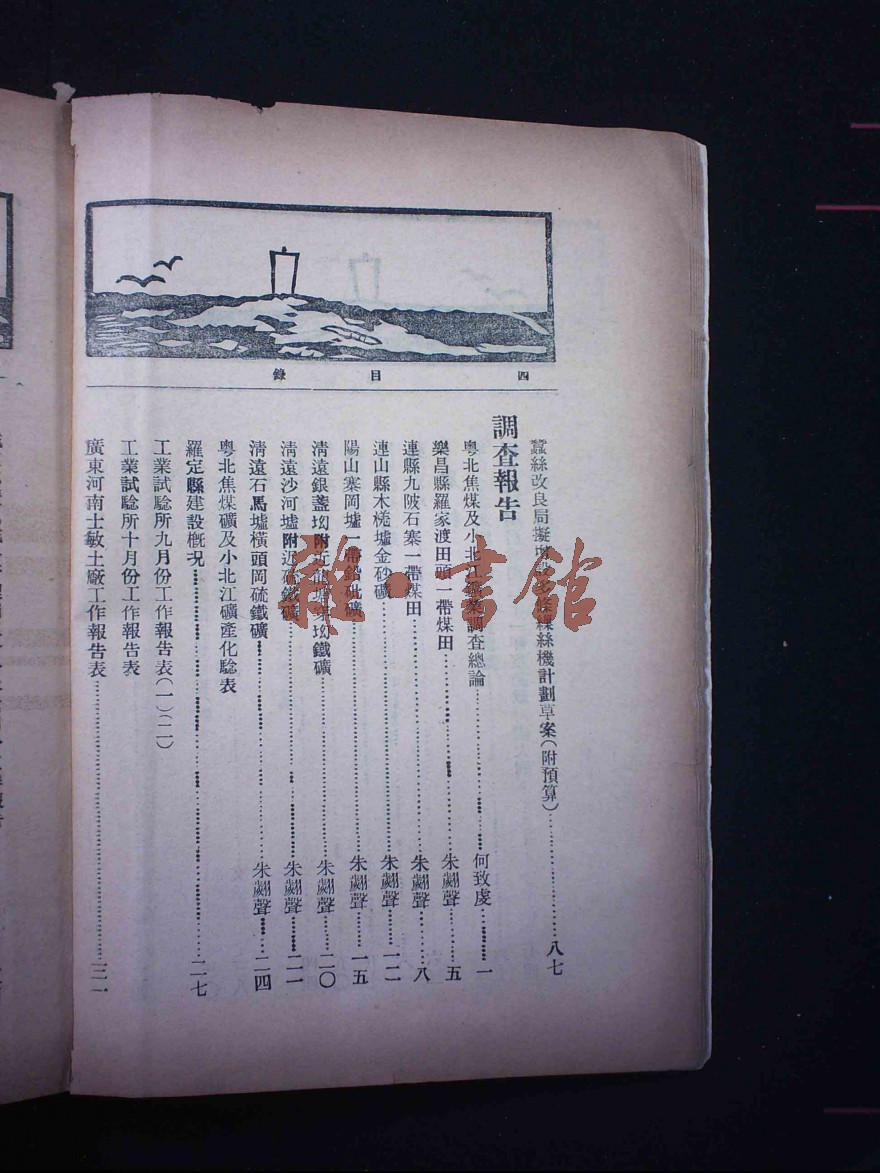 四 目 錄
蠶絲改良局擬 繅絲機計劃草案(附預算)……八七
調查報告
粵北焦煤及小北江鑛業調查總論……何致虔……一
樂昌縣羅家渡田頭一帶煤田……朱翽聲……五
連縣九陂石寨一帶煤田……朱翽聲……八
連山縣木梘墟金砂礦……朱翽聲……一二
陽山寨岡墟一帶鉛砒礦……朱翽聲……一五
清遠銀盞坳附近 坳鐵礦……朱翽聲……二〇
清遠沙河墟附近硫鐵礦……朱翽聲……二一
清遠石馬墟橫頭岡硫鐵礦……朱翽聲……二四
粵北焦煤礦及小北江礦產化驗表
羅定縣建設概况……二七
工業試驗所九月份工作報告表(一)(二)
工業試驗所十月份工作報告表
廣東河南士敏土廠工作報告表……三一
雜·書館